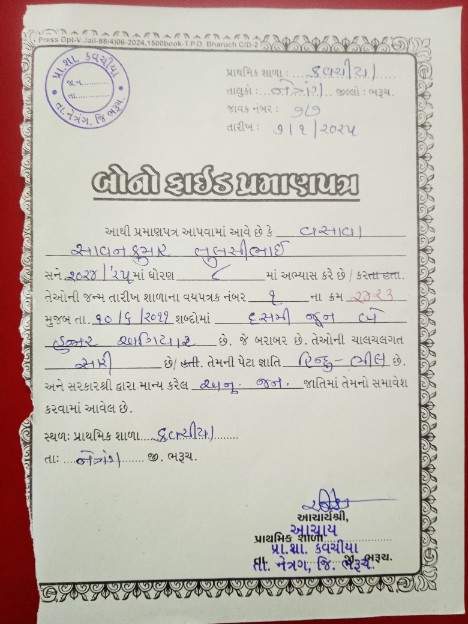 Press Dpt-V.Jail-88/4)06-2024,1500book-T.P.O. Bharuch C/D-2
પ્રા.શા. કવચીયા
જા.ન.
તા.
તા. નેત્રંગ, જિ. ભરૂચ.
પ્રાથમિક શાળા : કવચીયા
તાલુકો : નેત્રંગ જીલ્લો : ભરૂચ.
જાવક નંબર : ૭૭
તારીખ : ૭ / ૧ / ૨૦૨૫
બોનો ફાઈડ પ્રમાણપત્ર
આથી પ્રમાણપત્ર આપવામાં આવે છે કે વસાવા
સાવનકુમાર તુલસીભાઈ
સને ૨૦૨૪ / ૨૫ માં ધોરણ ૮ માં અભ્યાસ કરે છે/ કરતા હતા.
તેઓની જન્મ તારીખ શાળાના વયપત્રક નંબર ૧ ના ક્રમ
મુજબ તા. ૧૦/૬/૨૦૧૧ શબ્દોમાં દસમી જુન બે
હજાર અગિયાર છે. જે બરાબર છે. તેઓની ચાલચલગત
સારી છે/ હતી. તેમની પેટા જ્ઞાતિ હિન્દુ-ભીલ છે.
અને સરકારશ્રી દ્વારા માન્ય કરેલ અનુ. જન. જાતિમાં તેમનો સમાવેશ
કરવામાં આવેલ છે.
સ્થળ: પ્રાથમિક શાળા કવચીયા
તા: નેત્રંગ જી. ભરૂચ.
આચાર્યશ્રી,
આચાર્ય
પ્રાથમિક શાળા
પ્રા.શા. કવચીયા
તા. ભરૂચ.
તા. નેત્રંગ, જિ. ભરૂચ.